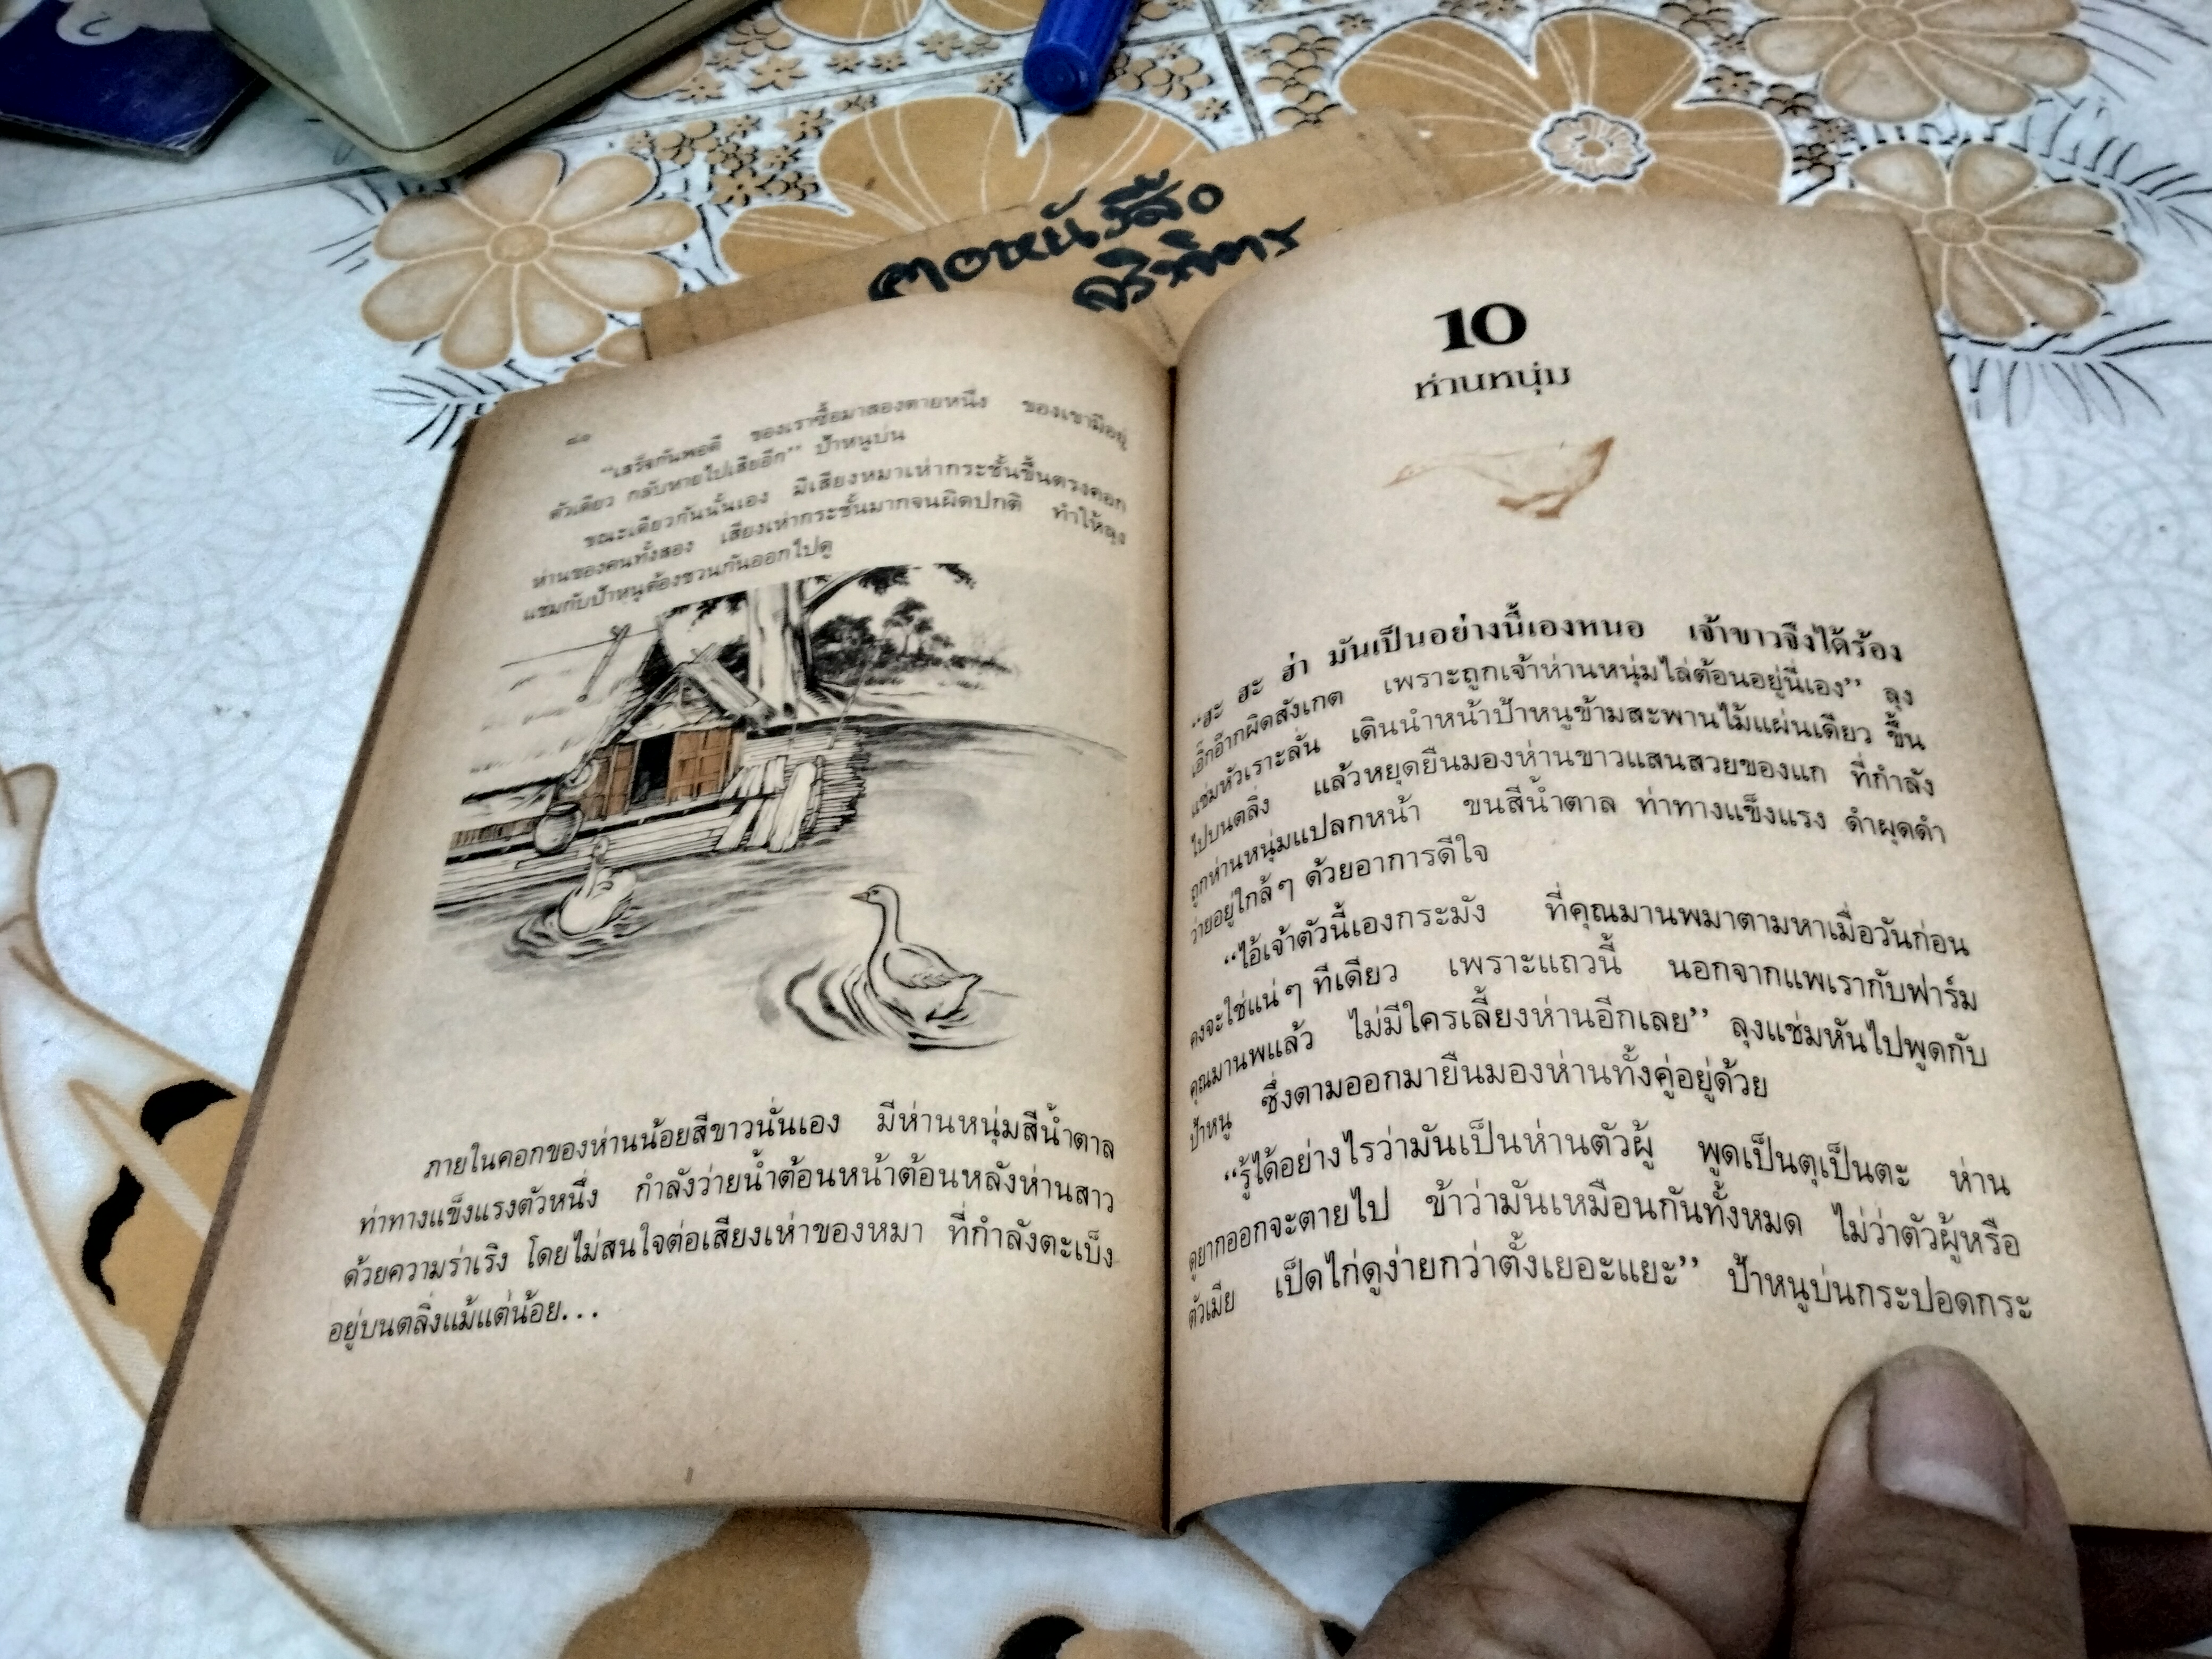 คอหนังสือ
วิจิตร
๘๐
“เสร็จกันพอดี ของเราซื้อมาลองตายหนึ่ง ของเขามีอยู่
ตัวเดียว กลับหายไปเสียอีก” ป้าหนูบ่น
ขณะเดียวกันนั้นเอง มีเสียงหมาเห่ากระชั้นขึ้นตรงคอก
ห่านของคนทั้งสอง เสียงเห่ากระชั้นมากจนผิดปกติ ทำให้ลุง
แช่มกับป้าหนูต้องชวนกันออกไปดู
ภายในคอกของห่านน้อยสีขาวนั่นเอง มีห่านหนุ่มสีน้ำตาล
ท่าทางแข็งแรงตัวหนึ่ง กำลังว่ายน้ำต้อนหน้าต้อนหลังห่านสาว
ด้วยความร่าเริง โดยไม่สนใจต่อเสียงเห่าของหมา ที่กำลังตะเบ็ง
อยู่บนตลิ่งแม้แต่น้อย...
10
ห่านหนุ่ม
“ฮะ ฮะ ฮ่า มันเป็นอย่างนี้เองหนอ เจ้าขาวจึงได้ร้อง
เอิ๊กอ๊ากผิดสังเกต เพราะถูกเจ้าห่านหนุ่มไล่ต้อนอยู่นี่เอง” ลุง
แช่มหัวเราะลั่น เดินนำหน้าป้าหนูข้ามสะพานไม้แผ่นเดียว ขึ้น
ไปบนตลิ่ง แล้วหยุดยืนมองห่านขาวแสนสวยของแก ที่กำลัง
ถูกห่านหนุ่มแปลกหน้า ขนสีน้ำตาล ท่าทางแข็งแรง ดำผุดดำ
ว่ายอยู่ใกล้ๆ ด้วยอาการดีใจ
“ไอ้เจ้าตัวนี้เองกระมัง ที่คุณมานพมาตามหาเมื่อวันก่อน
คงจะใช่แน่ๆ ทีเดียว เพราะแถวนี้ นอกจากแพเรากับฟาร์ม
คุณมานพแล้ว ไม่มีใครเลี้ยงห่านอีกเลย” ลุงแช่มหันไปพูดกับ
ป้าหนู ซึ่งตามออกมายืนมองห่านทั้งคู่อยู่ด้วย
“รู้ได้อย่างไรว่ามันเป็นห่านตัวผู้ พูดเป็นตุเป็นตะ ห่าน
ดูยากออกจะตายไป ข้าว่ามันเหมือนกันทั้งหมด ไม่ว่าตัวผู้หรือ
ตัวเมีย เป็ดไก่ดูง่ายกว่าตั้งเยอะแยะ” ป้าหนูบ่นกระปอดกระ